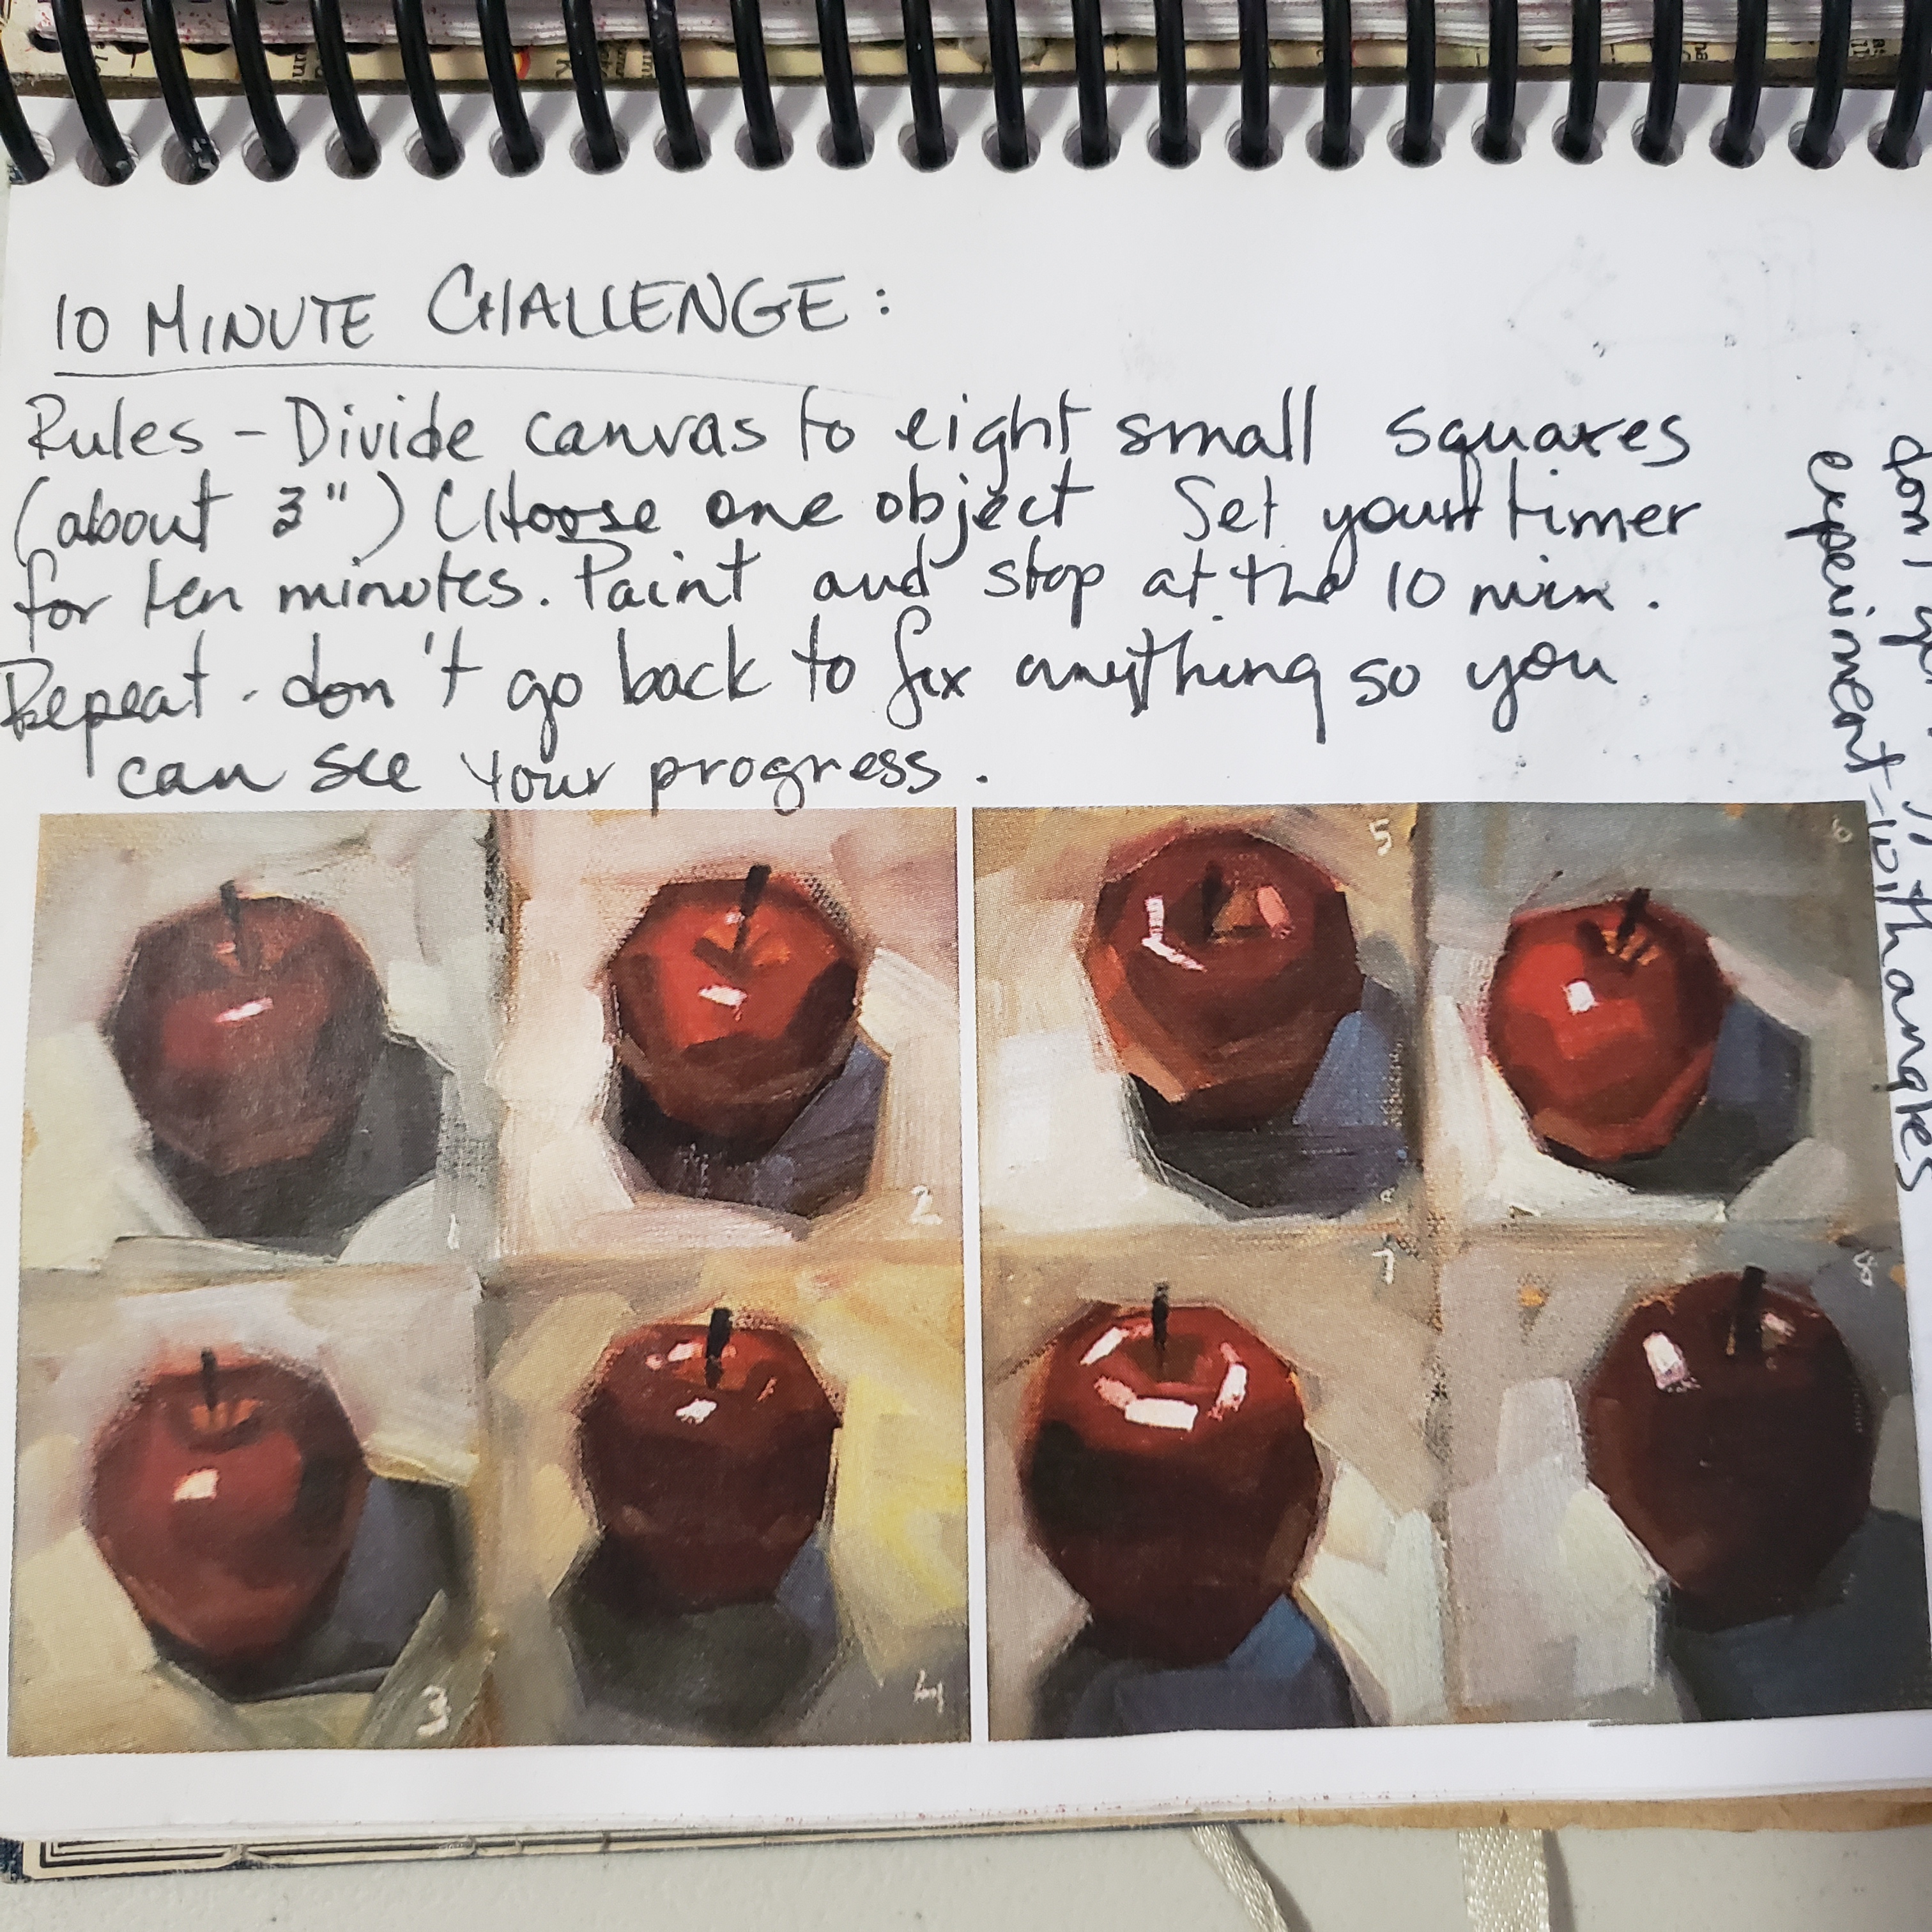 10 MINUTE CHALLENGE:
Rules - Divide canvas to eight small squares
(about 3") CHoose one object Set your timer
for ten minutes. Paint and stop at the 10 min.
Repeat. don't go back to fix anything so you
can see your progress.
experiment - with angles
1
2
3
4
5
6
7
8